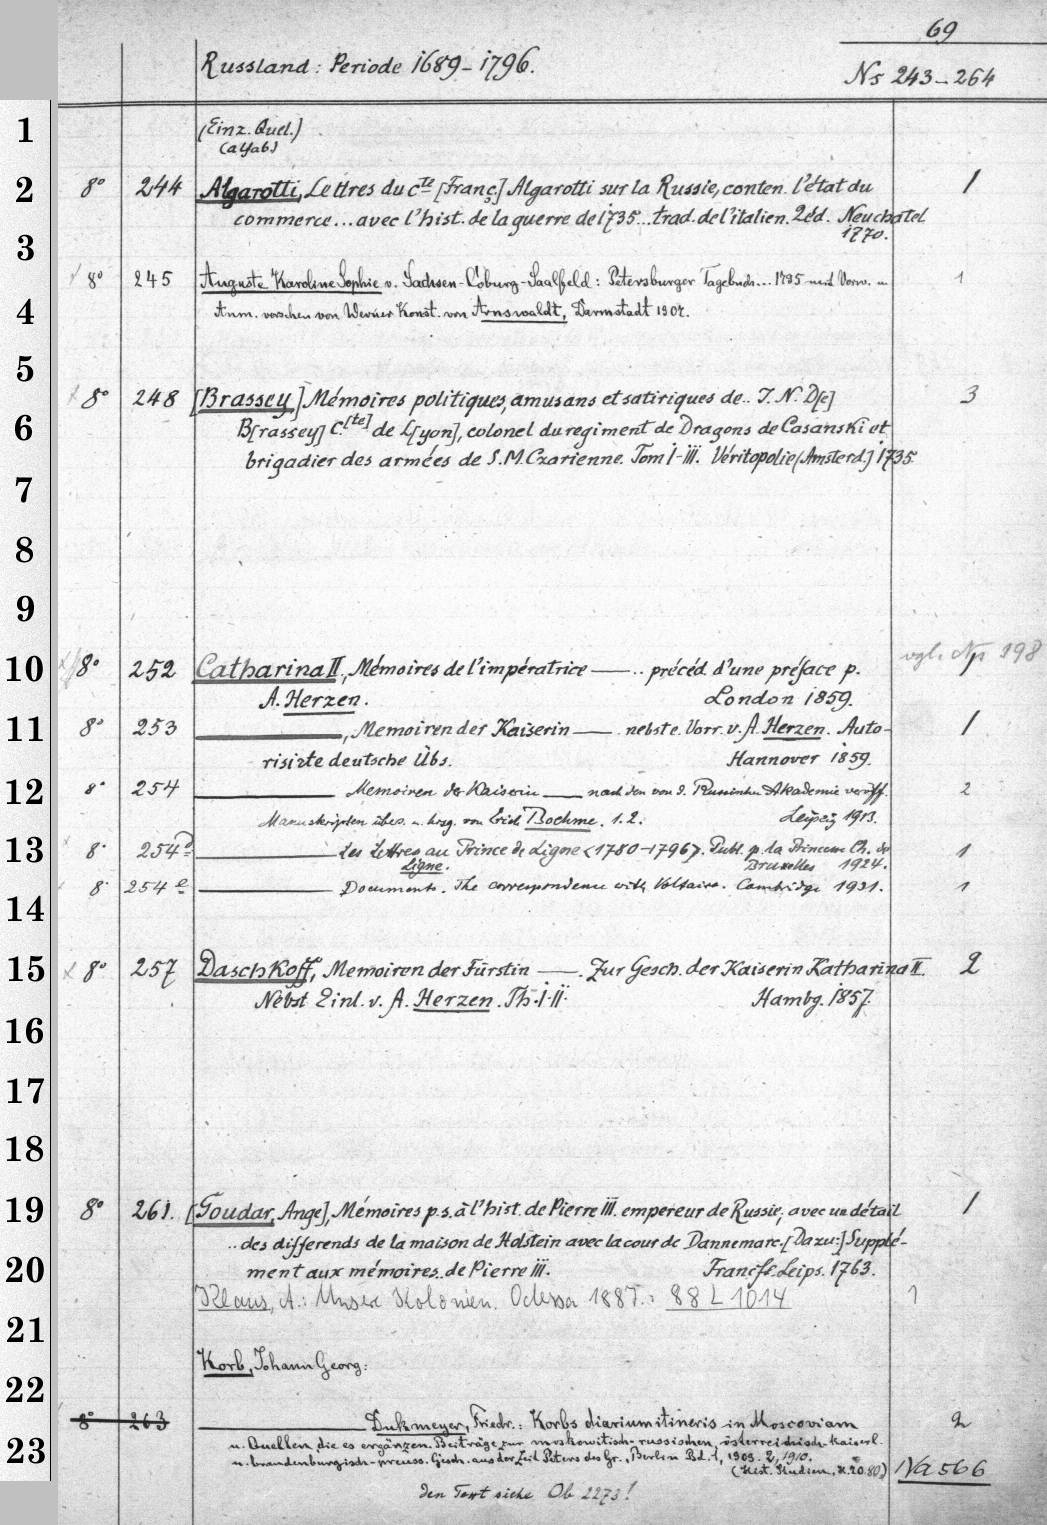 69
Russland: Periode 1689-1796.
Ns 243-264
1
(Einz. Quel.)
(alfab)
2
8° 244 Algarotti, Lettres du cte [Franç] Algarotti sur la Russie, conten. l'état du 1
commerce... avec l'hist. de la guerre de 1735... trad. de l'italien. 2éd. Neuchatel
1770.
3
8° 245 Auguste Karoline Sophie v. Sachsen-Coburg-Saalfeld: Petersburger Tagebuch... 1795 mit Vorw. u 1
4
Anm. versehen von Werner Konst. von Arnswaldt, Darmstadt 1907.
5
8° 248 [Brassey] Mémoires politiques, amusans et satiriques de.. J. N. D[e] 3
6
B[rassey] C.[te] de L[yon], colonel du regiment de Dragons de Casanski et
brigadier des armées de S. M. Czarienne. Tom I-III. Véritopolie [Amsterd.] 1735
7
8
9
10
8° 252 Catharina II, Mémoires de l'impératrice —— .. précéd. d'une préface p. vgl. Np 198
A. Herzen. London 1859.
11
8° 253 ——, Memoiren der Kaiserin —— nebst e. Vorr. v. A. Herzen. Auto- 1
risirte deutsche Übs. Hannover 1859.
12
8° 254 —— Memoiren der Kaiserin —— nach den von d. Russischen Akademie veröff. 2
Manuskripten übers. u. hrsg. von Erich Boehme. 1. 2. Leipzig 1913.
13
8° 254d —— Les Lettres au Prince de Ligne <1780-1796>. Publ. p. la Princesse Ch. de 1
Ligne. Bruxelles 1924.
8° 254e —— Documents. The correspondence with Voltaire. Cambridge 1931. 1
14
15
8° 257 Daschkoff, Memoiren der Fürstin ——. Zur Gesch. der Kaiserin Katharina II. 2
Nebst Einl. v. A. Herzen. Th. I-II. Hambg. 1857.
16
17
18
19
8° 261. [Goudar, Ange], Mémoires p. s. à l'hist. de Pierre III. empereur de Russie, avec un détail 1
.. des differends de la maison de Holstein avec la cour de Dannemarc. [Dazu:] Supplé-
20
ment aux mémoires.. de Pierre III. Francf. Leips. 1763.
Klaus, A.: Unsere Kolonien. Odessa 1887.: 88 L 1014 1
21
Korb, Johann Georg:
22
8° 263 —— Dukmeyer, Friedr.: Korbs diarium itineris in Moscoviam 2
23
u. Quellen, die es ergänzen. Beiträge zur moskowitisch-russischen, österreichisch-kaiserl.
u. brandenburgisch-preuss. Gesch. aus der Zeit Peters des Gr., Berlin Bd. 1, 1909. 2, 1910.
(Hist. Studien, H. 70. 80) Na 566
den Text siehe Ob 2273!